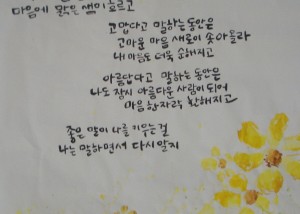 마음에 맑은 샘이 흐르고
고맙다고 말하는 동안은
고마운 마음 새로이 솟아올라
내 마음도 더욱 순해지고
아름답다고 말하는 동안은
나도 잠시 아름다운 사람이 되어
마음 한자락 환해지고
좋은 말이 나를 키우는걸
나는 말하면서 다시 알지